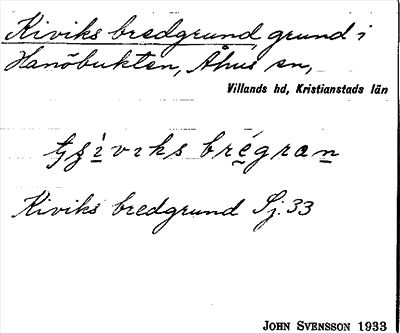 Kiviks bredgrund, grund i
Hanöbukten, Åhus sn,
Villands hd, Kristianstads län
bre̲gran̲
Kiviks bredgrund Sj. 33
JOHN SVENSSON 1933